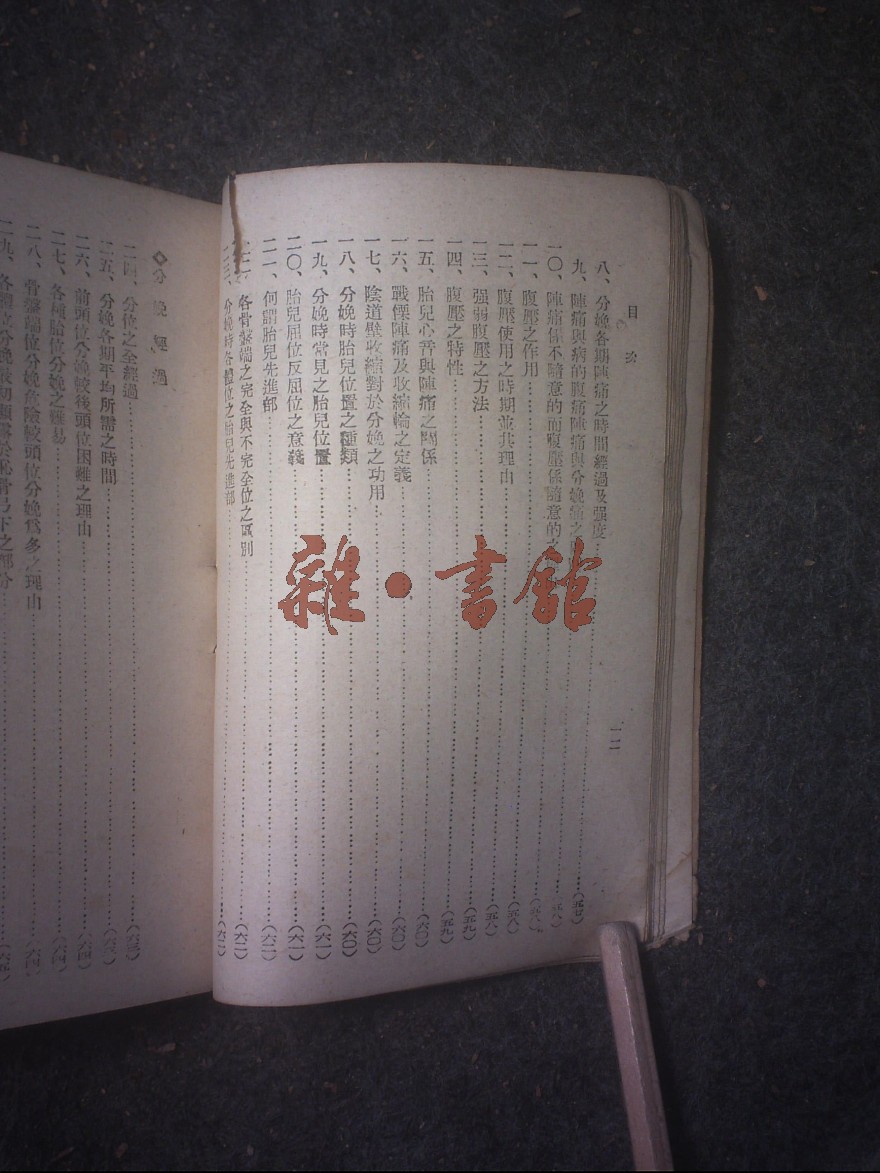 目次
一二
八、分娩各期陣痛之時間經過及强度
九、陣痛與病的腹痛陣痛與分娩痛之 (五七)
一〇、陣痛係不隨意的而腹壓係隨意的之 (五八)
一一、腹壓之作用 (五八)
一二、腹壓使用之時期並其理由 (五八)
一三、强弱腹壓之方法 (五八)
一四、腹壓之特性 (五九)
一五、胎兒心音與陣痛之關係 (六〇)
一六、戰慄陣痛及收縮輪之定義 (六〇)
一七、陰道壁收縮對於分娩之功用 (六〇)
一八、分娩時胎兒位置之種類 (六〇)
一九、分娩時常見之胎兒位置 (六一)
二〇、胎兒屈位反屈位之意義 (六一)
二一、何謂胎兒先進部 (六二)
各骨盤端之完全與不完全位之區別 (六二)
分娩時各體位之胎兒先進部 (六二)
◆分娩經過
二四、分位之全經過 (六三)
二五、分娩各期平均所需之時間 (六三)
二六、前頭位分娩較後頭位困難之理由 (六四)
二七、各種胎位分娩之難易 (六四)
二八、骨盤端位分娩危險較頭位分娩爲多之理由 (六四)
二九、各體位分娩
雜·書館